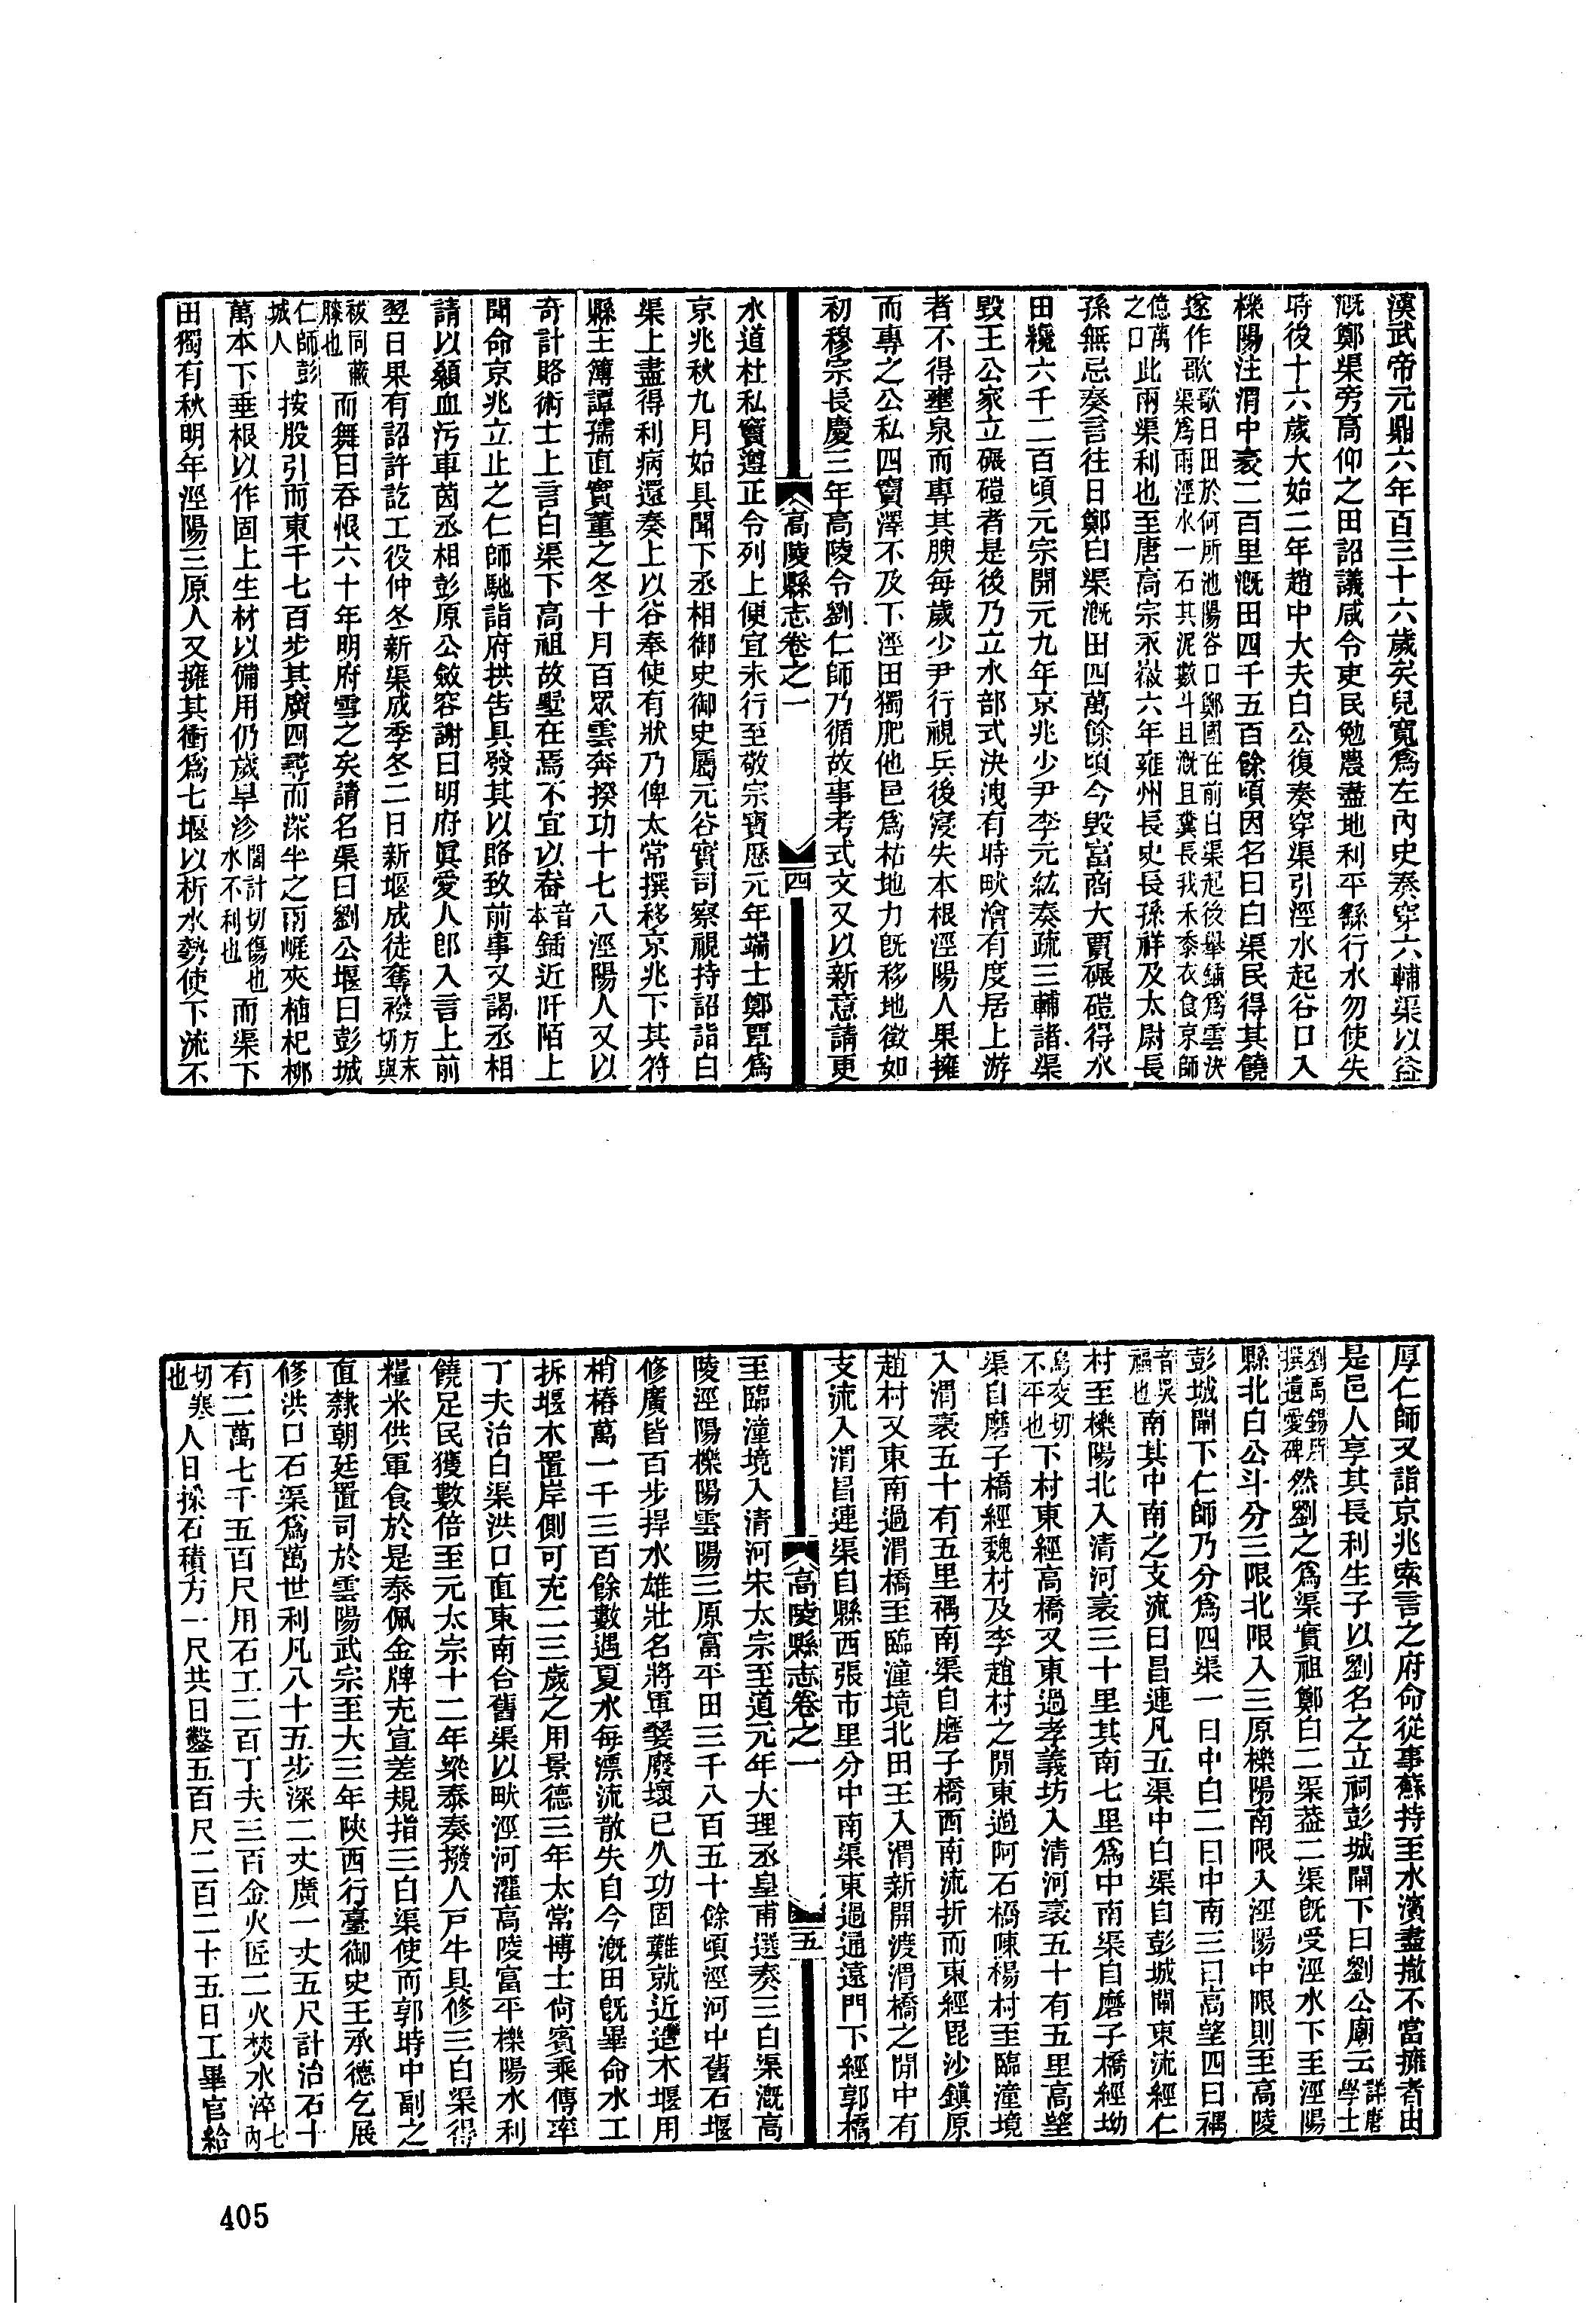 漢武帝元鼎六年百三十六歲矣兒寬爲左內史奏穿六輔渠以益
溉鄭渠旁高仰之田詔議咸令吏民勉農盡地利平繇行水勿使失
時後十六歲大始二年趙中大夫白公復奏穿渠引涇水起谷口入
櫟陽注渭中袤二百里溉田四千五百餘頃因名曰白渠民得其饒
遂作歌歌曰田於何所池陽谷口鄭國在前白渠起後舉鍤爲雲決渠爲雨涇水一石其泥數斗且溉且糞長我禾黍衣食京師
億萬之口此兩渠利也至唐高宗永徽六年雍州長史長孫祥及太尉長
孫無忌奏言往日鄭白渠溉田四萬餘頃今毀富商大賈碾磑得水
田纔六千二百頃元宗開元九年京兆少尹李元紘奏疏三輔諸渠
毀王公家立碾磑者是後乃立水部式決洩有時畎澮有度居上游
者不得壅泉而專其腴每歲少尹行視兵後寖失本根涇陽人果擁
而專之公私四竇澤不及下涇田獨肥他邑爲枯地力既移地徵如
初穆宗長慶三年高陵令劉仁師乃循故事考式文又以新意請更
高陵縣志卷之一 四
水道杜私竇遵正令列上便宜未行至敬宗寶歷元年端士鄭覃爲
京兆秋九月始具聞下丞相御史御史屬元谷實司察視持詔詣白
渠上盡得利病還奏上以谷奉使有狀乃俾太常撰移京兆下其符
縣主簿譚孺直實董之冬十月百眾雲奔揆功十七八涇陽人又以
奇計賂術士上言白渠下高祖故墅在焉不宜以畚音本鍤近阡陌上
聞命京兆立止之仁師馳詣府拱告具發其以賂致前事又謁丞相
請以顙血污車茵丞相彭原公斂容謝曰明府眞愛人郎入言上前
翌日果有詔許訖工役仲冬新渠成季冬二日新堰成徒奪襏方末切與
袚同蔽膝也而舞曰吞恨六十年明府雪之矣請名渠曰劉公堰曰彭城
仁師彭城人按股引而東千七百步其廣四尋而深半之兩崕夾植杞柳
萬本下垂根以作固上生材以備用仍歲旱沴閭計切傷也水不利也而渠下
田獨有秋明年涇陽三原人又擁其衝爲七堰以析水勢使下流不
厚仁師又詣京兆索言之府命從事蘇持至水濱盡撤不當擁者由
是邑人享其長利生子以劉名之立祠彭城閘下曰劉公廟云詳唐學士
劉禹錫所撰遺愛碑然劉之爲渠實祖鄭白二渠葢二渠既受涇水下至涇陽
縣北白公斗分三限北限入三原櫟陽南限入涇陽中限則至高陵
彭城閘下仁師乃分爲四渠一曰中白二曰中南三曰高望四曰禑
音吳福也南其中南之支流曰昌連凡五渠中白渠自彭城閘東流經仁
村至櫟陽北入清河袤三十里其南七里爲中南渠自磨子橋經坳
烏交切不平也下村東經高橋又東過孝義坊入清河袤五十有五里高望
渠自磨子橋經魏村及李趙村之閒東過阿石橋陳楊村至臨潼境
入渭袤五十有五里禑南渠自磨子橋西南流折而東經毘沙鎭原
趙村又東南過渭橋至臨潼境北田王入渭新開渡渭橋之閒中有
支流入渭昌連渠自縣西張市里分中南渠東過通遠門下經郭橋
高陵縣志卷之一 五
至臨潼境入清河宋太宗至道元年大理丞皇甫選奏三白渠溉高
陵涇陽櫟陽雲陽三原富平田三千八百五十餘頃涇河中舊石堰
修廣皆百步捍水雄壯名將軍翣廢壞已久功固難就近造木堰用
梢椿萬一千三百餘數遇夏水每漂流散失自今溉田既畢命水工
拆堰木置岸側可充二三歲之用景德三年太常博士尙賓乘傳率
丁夫治白渠洪口直東南合舊渠以畎涇河灌高陵富平櫟陽水利
饒足民獲數倍至元太宗十二年梁泰奏撥人戸牛具修三白渠得
糧米供軍食於是泰佩金牌充宣差規措三白渠使而郭時中副之
直隸朝廷置司於雲陽武宗至大三年陝西行臺御史王承德乞展
修洪口石渠爲萬世利凡八十五步深二丈廣一丈五尺計治石十
有二萬七千五百尺用石工二百丁夫三百金火匠二火焚水淬七內
切寒也人日採石積方一尺共日鑿五百尺二百二十五日工畢官給
405